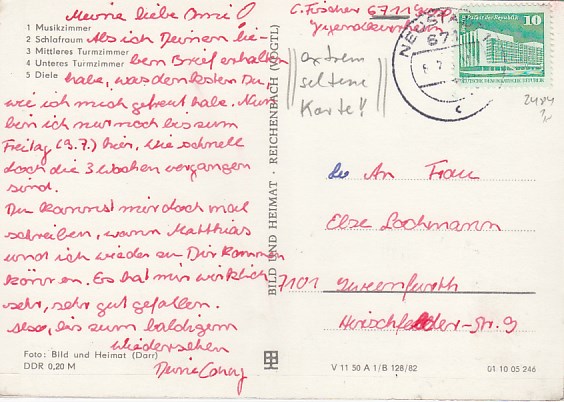 Meine liebe Omi!
1 Musikzimmer
2 Schlafraum
3 Mittleres Turmzimmer
4 Unteres Turmzimmer
5 Diele
Als ich Deinen lie-
ben Brief erhalten
habe, was denkst Du,
wie ich mich gefreut habe. Nun
bin ich nur noch bis zum
Freitag (9.7.) hier, wie schnell
doch die 3 Wochen vergangen
sind.
Du kannst mir doch mal
schreiben, wann Matthias
und ich wieder zu Dir kommen
können. Es hat mir wirklich
sehr, sehr gut gefallen.
Also, bis zum baldigen
Wiedersehen
Deine
Foto: Bild und Heimat (Darr)
DDR 0,20 M
BILD UND HEIMAT · REICHENBACH (VOGTL)
C. Fischer 6711
extrem
seltene
Karte!
Palast der Republik 10
DEUTSCHE DEMOKRATISCHE REPUBLIK
671
c
An Frau
Else Lochmann
7101
Hirschfelder-Str. 9
V 11 50 A 1/B 128/82
01 10 05 246